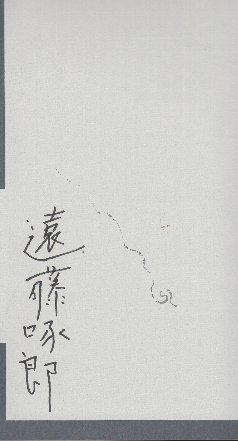 遠藤啄郎